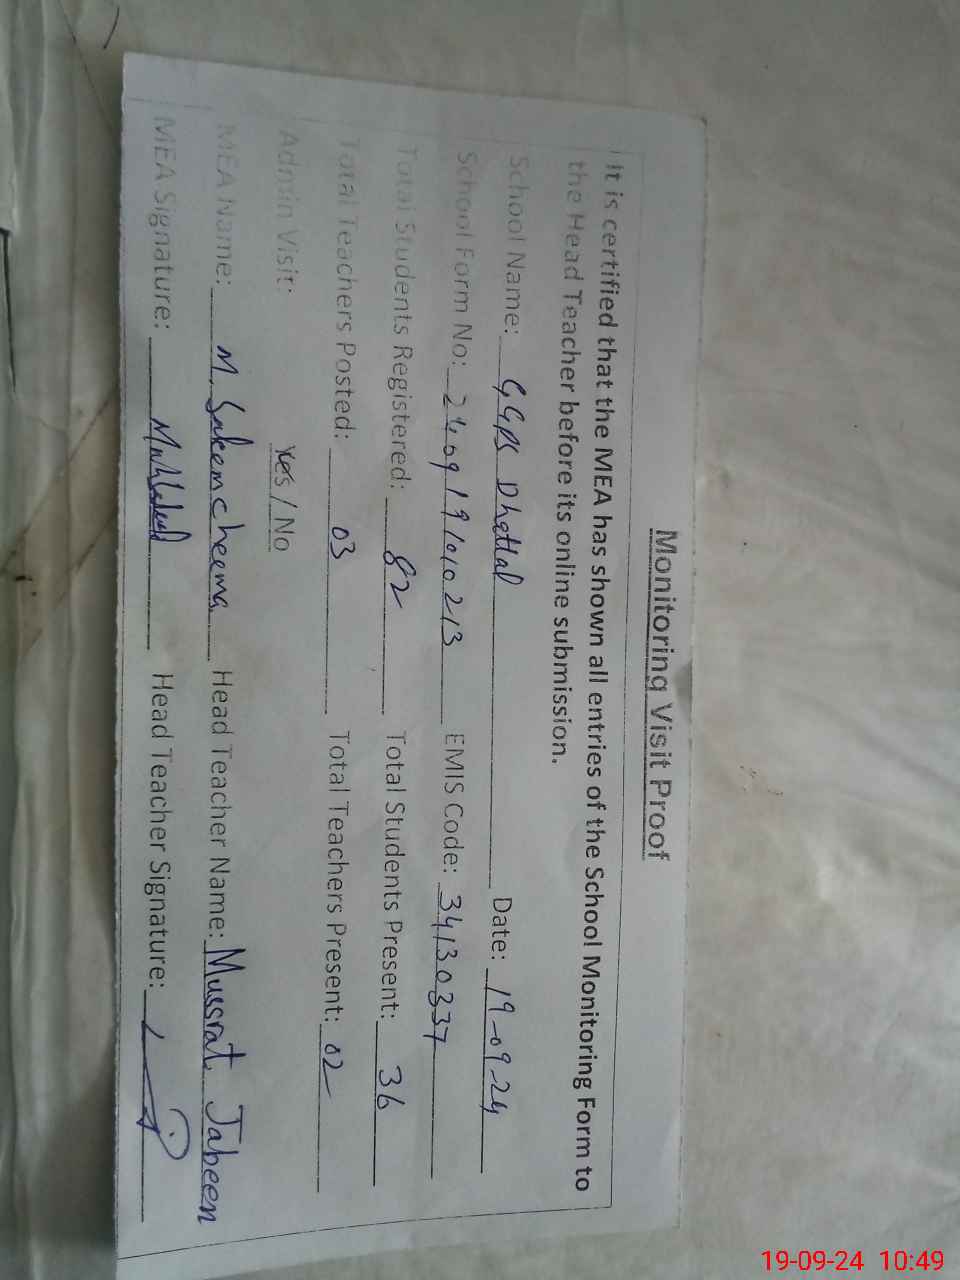 Monitoring Visit Proof
It is certified that the MEA has shown all entries of the School Monitoring Form to
the Head Teacher before its online submission.
School Name: GGPS Dhattal Date: 19-09-24
School Form No: 2409191010213 EMIS Code: 34130337
Total Students Registered: 82 Total Students Present: 36
Total Teachers Posted: 03 Total Teachers Present: 02
Admin Visit: Yes / No
MEA Name: M. Saleem cheema Head Teacher Name: Mussrat Jabeen
MEA Signature: Head Teacher Signature:
19-09-24 10:49